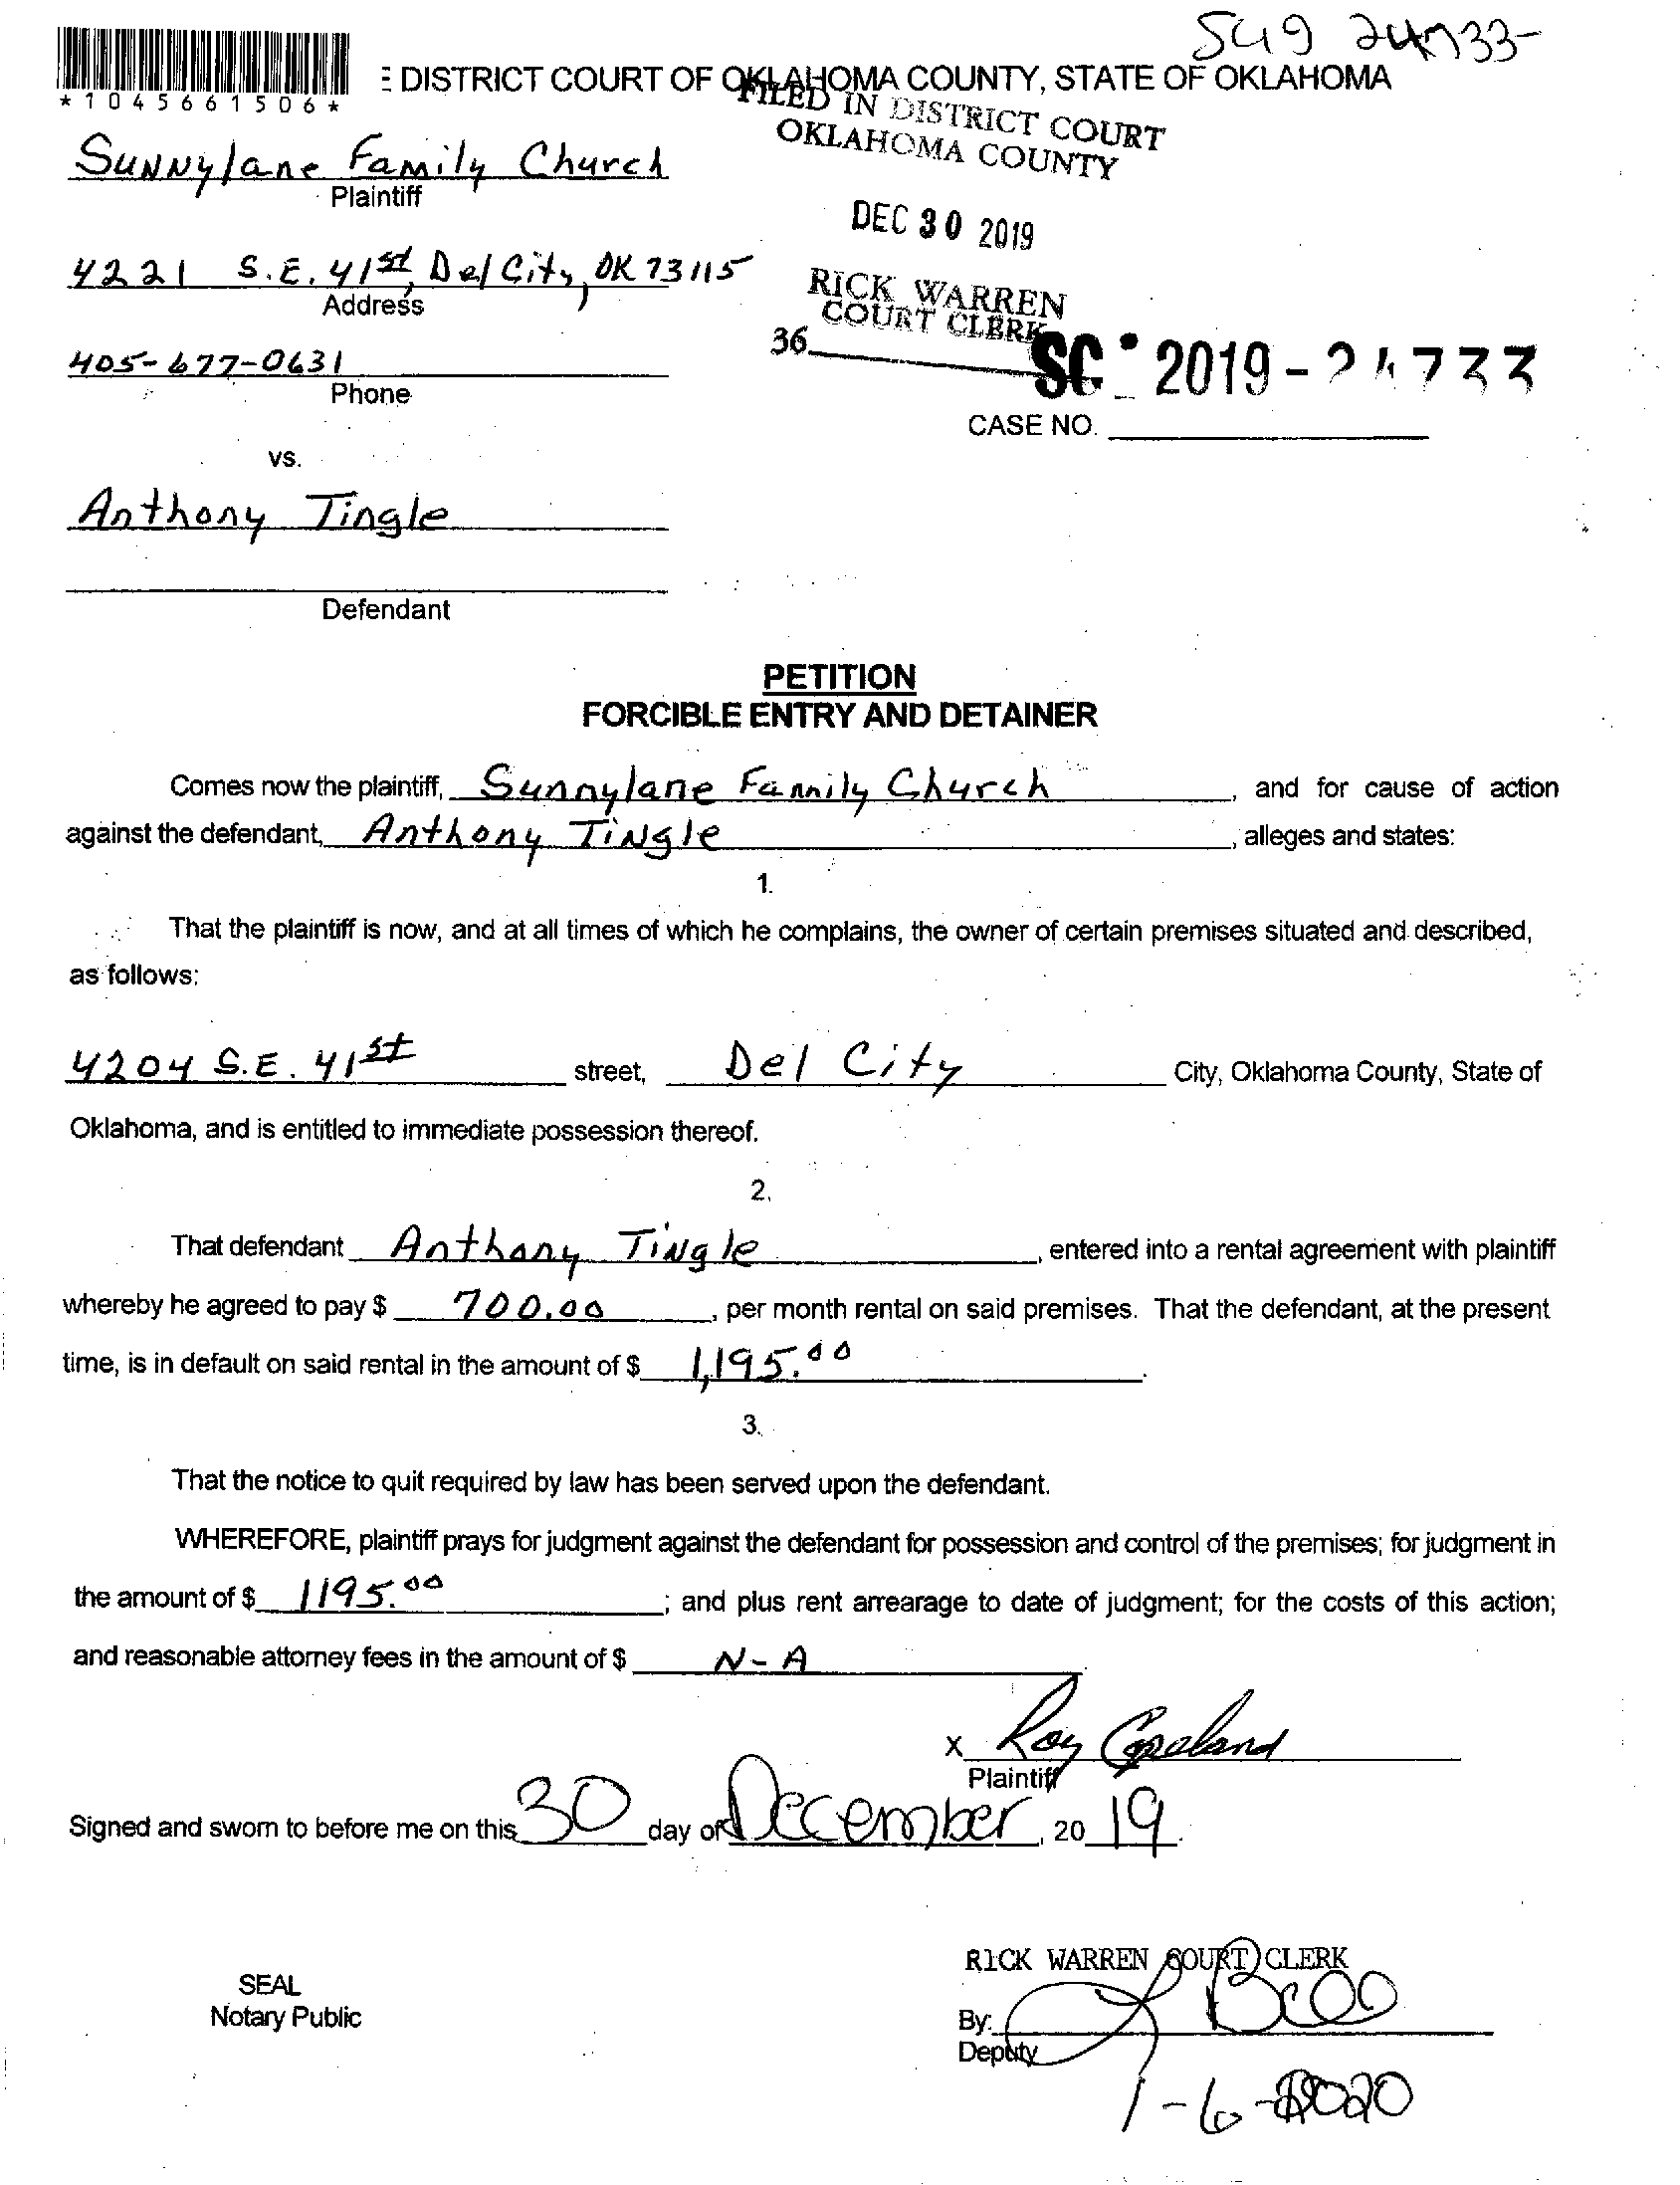 SC19 24733-
DISTRICT COURT OF OKLAHOMA COUNTY, STATE OF OKLAHOMA
*1045661506*
FILED IN DISTRICT COURT
OKLAHOMA COUNTY
Sunnylane Family Church
Plaintiff
DEC 30 2019
4221 S.E. 41st, Del City, OK 73115
Address
RICK WARREN
COURT CLERK
36
405-677-0631
Phone
SC - 2019 - 24733
CASE NO.
vs.
Anthony Tingle
Defendant
PETITION
FORCIBLE ENTRY AND DETAINER
Comes now the plaintiff, Sunnylane Family Church, and for cause of action
against the defendant, Anthony Tingle, alleges and states:
1.
That the plaintiff is now, and at all times of which he complains, the owner of certain premises situated and described,
as follows:
4204 S.E. 41st street, Del City City, Oklahoma County, State of
Oklahoma, and is entitled to immediate possession thereof.
2.
That defendant Anthony Tingle, entered into a rental agreement with plaintiff
whereby he agreed to pay $ 700.00, per month rental on said premises. That the defendant, at the present
time, is in default on said rental in the amount of $ 1,195.00.
3.
That the notice to quit required by law has been served upon the defendant.
WHEREFORE, plaintiff prays for judgment against the defendant for possession and control of the premises; for judgment in
the amount of $ 1195.00; and plus rent arrearage to date of judgment; for the costs of this action;
and reasonable attorney fees in the amount of $ N-A.
X Roy Copeland
Plaintiff
Signed and sworn to before me on this 30 day of December, 20 19.
RICK WARREN COURT CLERK
SEAL
Notary Public
By:
Deputy
1-6-2020